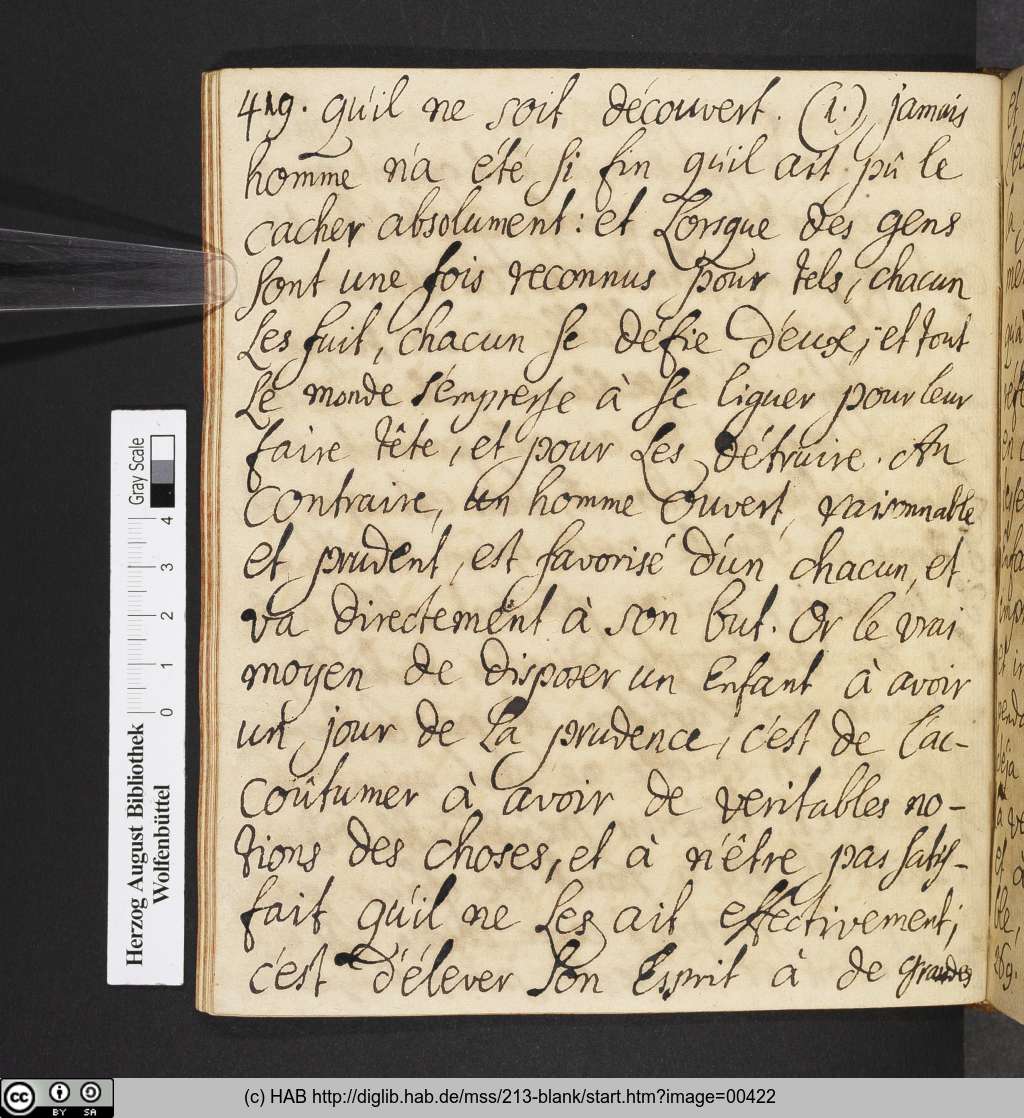 419. qu'il ne soit découvert. (1.) jamais
homme n'a été si fin qu'il ait pû le
cacher absolument: et Lorsque des gens
sont une fois reconnus pour tels, chacun
Les fuit, chacun se défie d'eux, et tout
Le monde s'empresse à se liguer pour leur
faire tête, et pour Les détruire. Au
Contraire, un homme Ouvert, raisonnable
et prudent, est favorisé d'un chacun, et
va directement à son but. Or le vrai
moyen de disposer un Enfant à avoir
un jour de La prudence, c'est de l'ac-
coûtumer à avoir de veritables no-
tions des choses, et à n'être pas satis-
fait qu'il ne Les ait effectivement;
c'est d'élever son Esprit à de grandes
Gray Scale
4
3
2
1
0
Herzog August Bibliothek
Wolfenbüttel
cc BY SA
(c) HAB http://diglib.hab.de/mss/213-blank/start.htm?image=00422